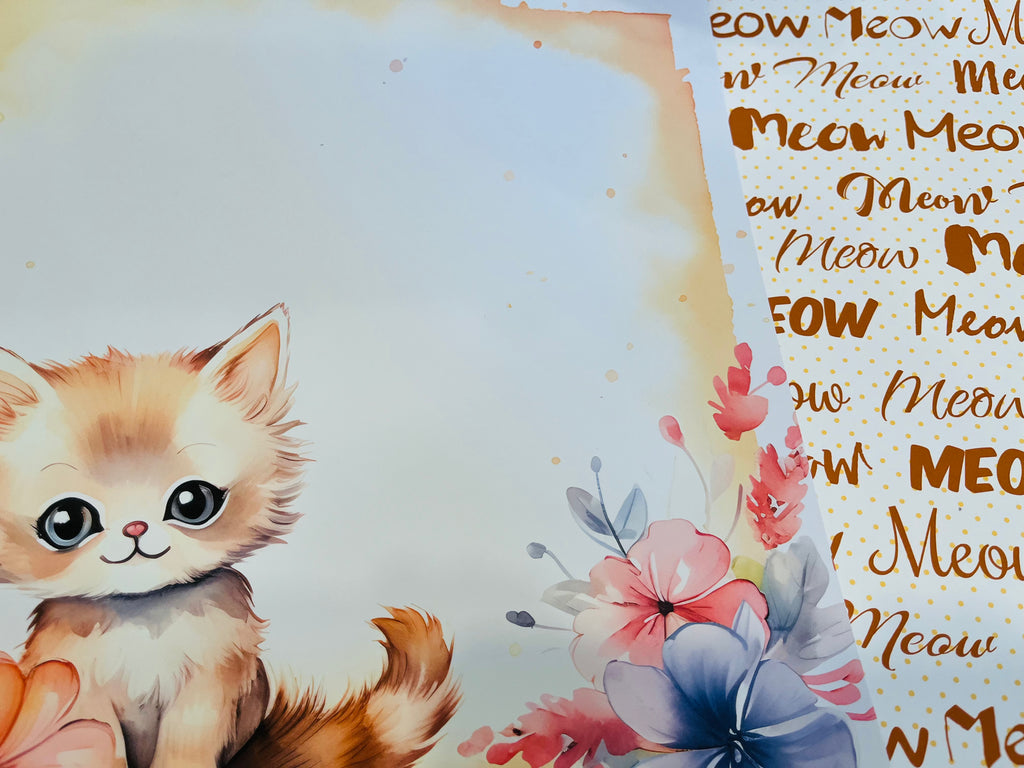 eow Meow M
w Meow Me
Meow Meow
ow Meow
Meow Me
EOW Meow
ow Meow
ow MEO
Meow
Meow
w Me